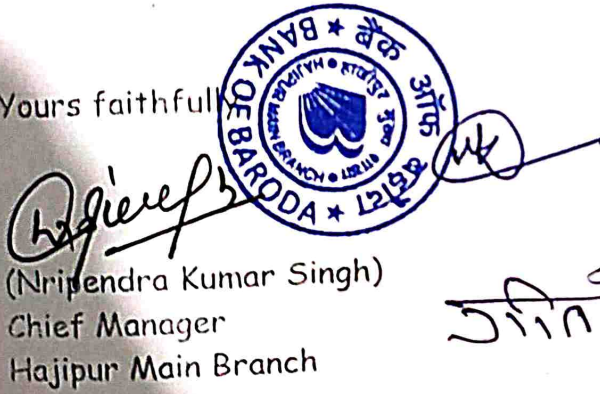 Yours faithfully
BANK OF BARODA
बैंक ऑफ बड़ौदा
HAJIPUR MAIN BRANCH
(Nripendra Kumar Singh)
Chief Manager
Hajipur Main Branch